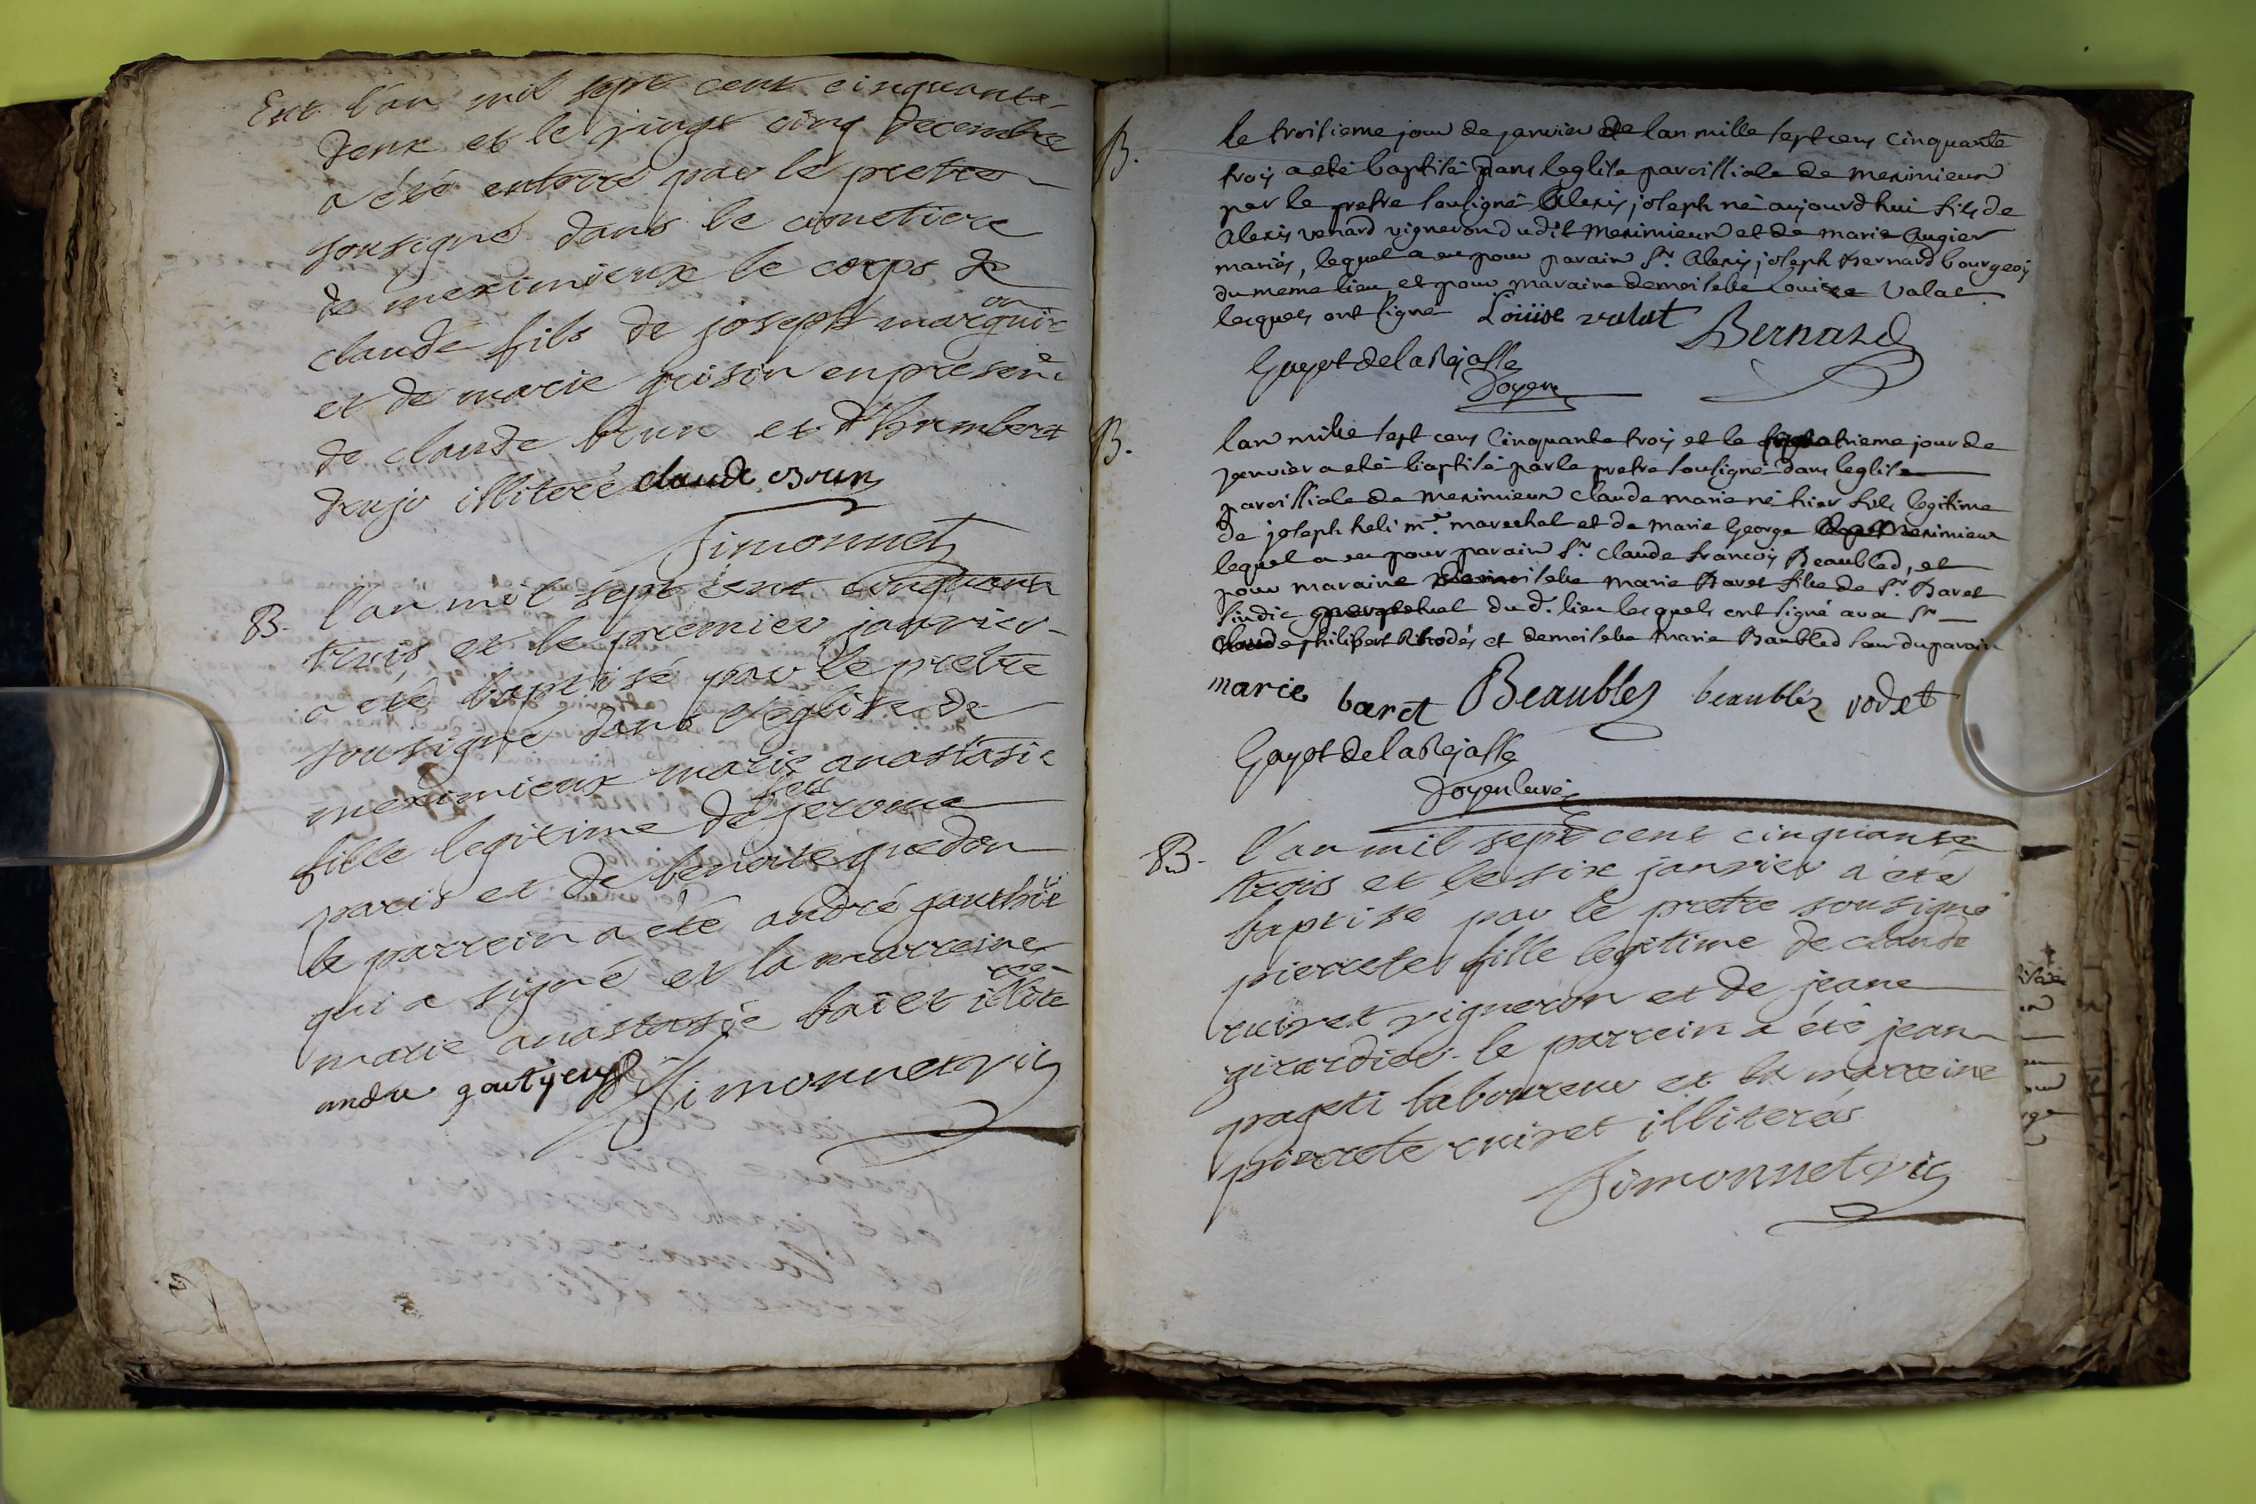 Ent l'an mil sept cent cinquante
deux et le vingt cinq decembre
a été enterré par le pretre
sousigné dans le cimetiere
de meximieux le corps de
claude fils de joseph marguiron
et de marie grisin en presence
de claude brun et d'humbert
illiteré claude Brun
Simonnet
B. l'an mil sept cent cinquante
trois et le premier janvier
a été baptisé par le pretre
sousigné dans l'eglise de
meximieux marie anastasie
fille legitime de jerome
paris et de benoite guedon
le parrein a été andré gauthier
qui a signé et la marreine
marie anastasie baiet illiteree
andre gautyeu Simonnet vic
B. le troisieme jour de janvier de lan mille sept cens Cinquante
trois a eté baptisé dans leglise paroissiale de meximieux
par le pretre sousigné Alexis joseph né aujourdhui fils de
Alexis venard vigneron dudit Meximieux et de marie Augier
mariés, lequel a eu pour parain Sr. Alexis joseph Bernard bourgeois
du meme lieu et pour maraine demoiselle Louise Valat
lesquels ont signé Loüise valat Bernard
Gayot de la Rejasse
Doyen
B. lan mille sept cens Cinquante trois et le quatrieme jour de
janvier a eté baptisé par le pretre sousigné dans leglise
paroissiale de meximieux Claude marie né hier fils legitime
de joseph heli me. marechal et de marie George Meximieux
lequel a eu pour parain Sr. Claude francois Beaubled, et
pour maraine demoiselle marie Baret fille de Sr. Baret
sindic perpetuel du d. lieu lesquels ont signé avec Sr
philibert et demoiselle marie Baubled seur du parain
marie baret Beaublez beaubléz rodet
Gayot de la Rejasse
Doyen curé
B. l'an mil sept cent cinquante
trois et le six janvier a été
baptisé par le pretre sousigné
pierrete fille legitime de claude
cuiret vigneron et de jeane
girardier le parrein a été jean
pageti laboureur et la marreine
pierrete cuiret illiterés
Simonnet vic